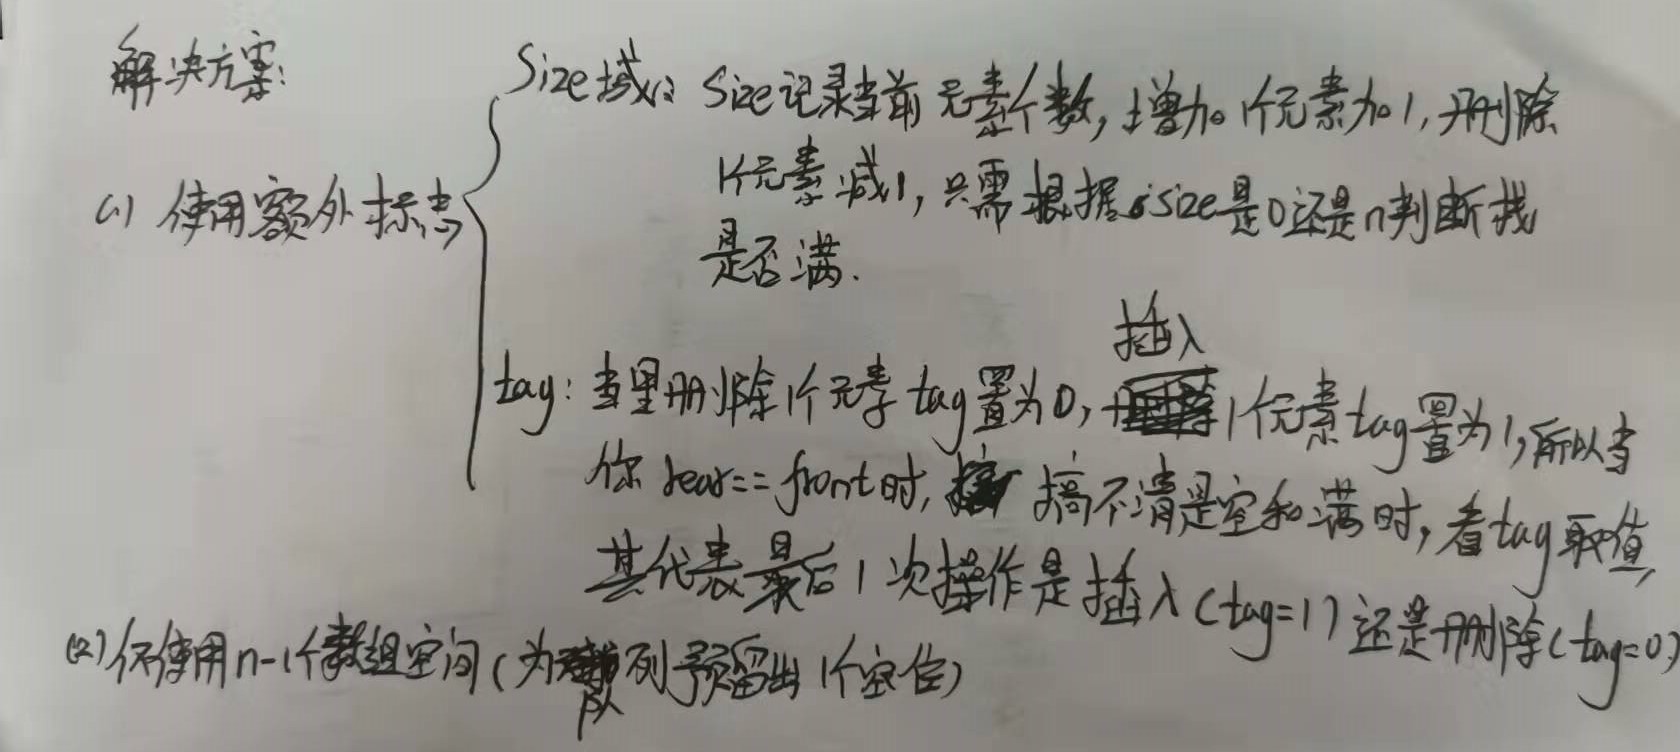 解决方案:
Size域: Size记录当前元素个数,增加1个元素加1,删除
1个元素减1,只需根据size是0还是n判断栈
是否满.
(1) 使用额外标志
tag: 当里删除1个元素tag置为0,插入1个元素tag置为1,所以当
你rear==front时,搞不清是空和满时,看tag取值,
其代表最后1次操作是插入(tag=1)还是删除(tag=0)
(2)仅使用n-1个数组空间(为队列预留出1个空位)